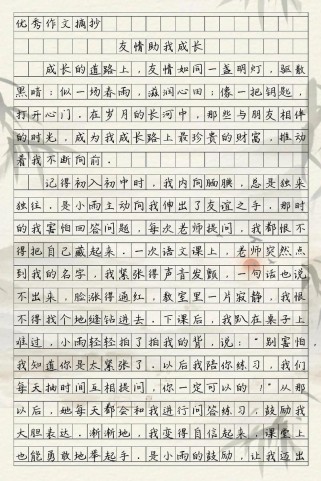 优秀作文摘抄
友情助我成长
成长的道路上，友情如同一盏明灯，驱散
黑暗；似一场春雨，滋润心田；像一把钥匙，
打开心门。在岁月的长河中，那些与朋友相伴
的时光，成为我成长路上最珍贵的财富，推动
着我不断向前。
记得初入初中时，我内向腼腆，总是独来
独往，是小雨主动向我伸出了友谊之手。那时
的我害怕回答问题，每次老师提问，我都恨不
得把自己藏起来。一次语文课上，老师突然点
到我的名字，我紧张得声音发颤，一句话也说
不出来，脸涨得通红，教室里一片寂静，我恨
不得找个地缝钻进去。下课后，我趴在桌子上
难过，小雨轻轻拍了拍我的背，说：“别害怕，
我知道你是太紧张了。以后我陪你练习，我们
每天抽时间互相提问，你一定可以的！”从那
以后，她每天都会和我进行问答练习，鼓励我
大胆表达。渐渐地，我变得自信起来，课堂上
也能勇敢地举起手。是小雨的鼓励，让我迈出